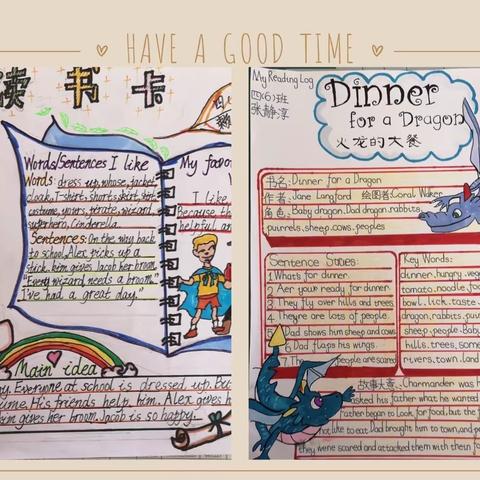 HAVE A GOOD TIME
读书卡
Words/Sentences I like
Words: dress up, whose, jacket,
cloak, T-shirt, shorts, skirt, shirt
costume, yours, pirate, wizard,
superhero, Cinderella.
Sentences: On the way back
to school, Alex picks up a
stick. Kim gives Jacob her broom.
"Every wizard needs a broom."
"I've had a great day."
My favo
I like
Because th
helpful an
Main idea
ay. Everyone at school is dressed up. But
ume. His friends help him. Alex gives h
im gives her broom. Jacob is so happy.
My Reading Log
四(6)班
张静淳
Dinner
for a Dragon
火龙的大餐
书名: Dinner for a Dragon
作者: Jane Langford 绘图者: Coral Walker
角色: Baby dragon. Dad dragon. rabbits.
squirrels. sheep. cows. peoples
Sentence Stories:
1. What's for dinner.
2. Aer your ready for dinner
3. They fly over hills and trees.
4. They are lots of people.
5. Dad shows him sheep and cows.
6. Dad flaps his wings.
7. The people are scared
Key Words:
dinner. hungry. vege
tomato. noodle. foo
bowl. lick. taste.
dragon. rabbits.
sheep. people. Baby
hills. trees. some
rivers. town. land
故事大意: Charmander was h
asked his father what he wanted
Father began to Look for food, but the f
not like to eat. Dad brought him to town, and p
they were scared and attacked them with their fo